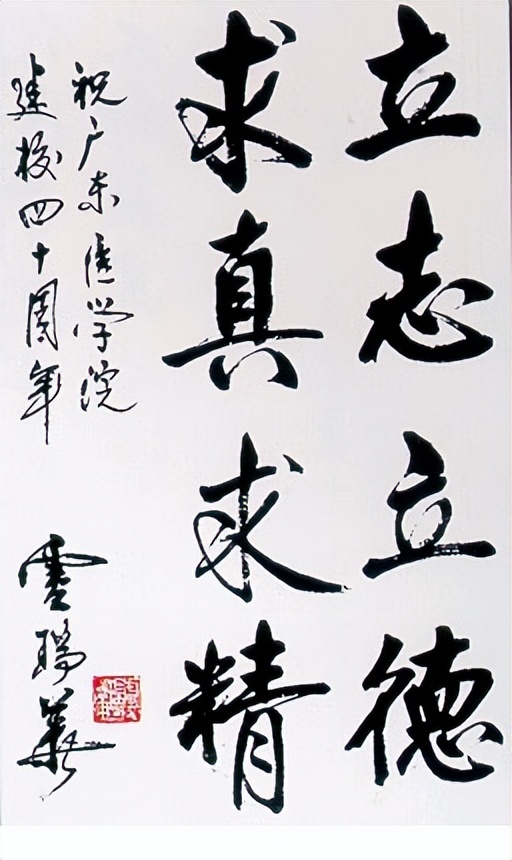 立志立德
求真求精
祝广东医学院
建校四十周年
云瑞華